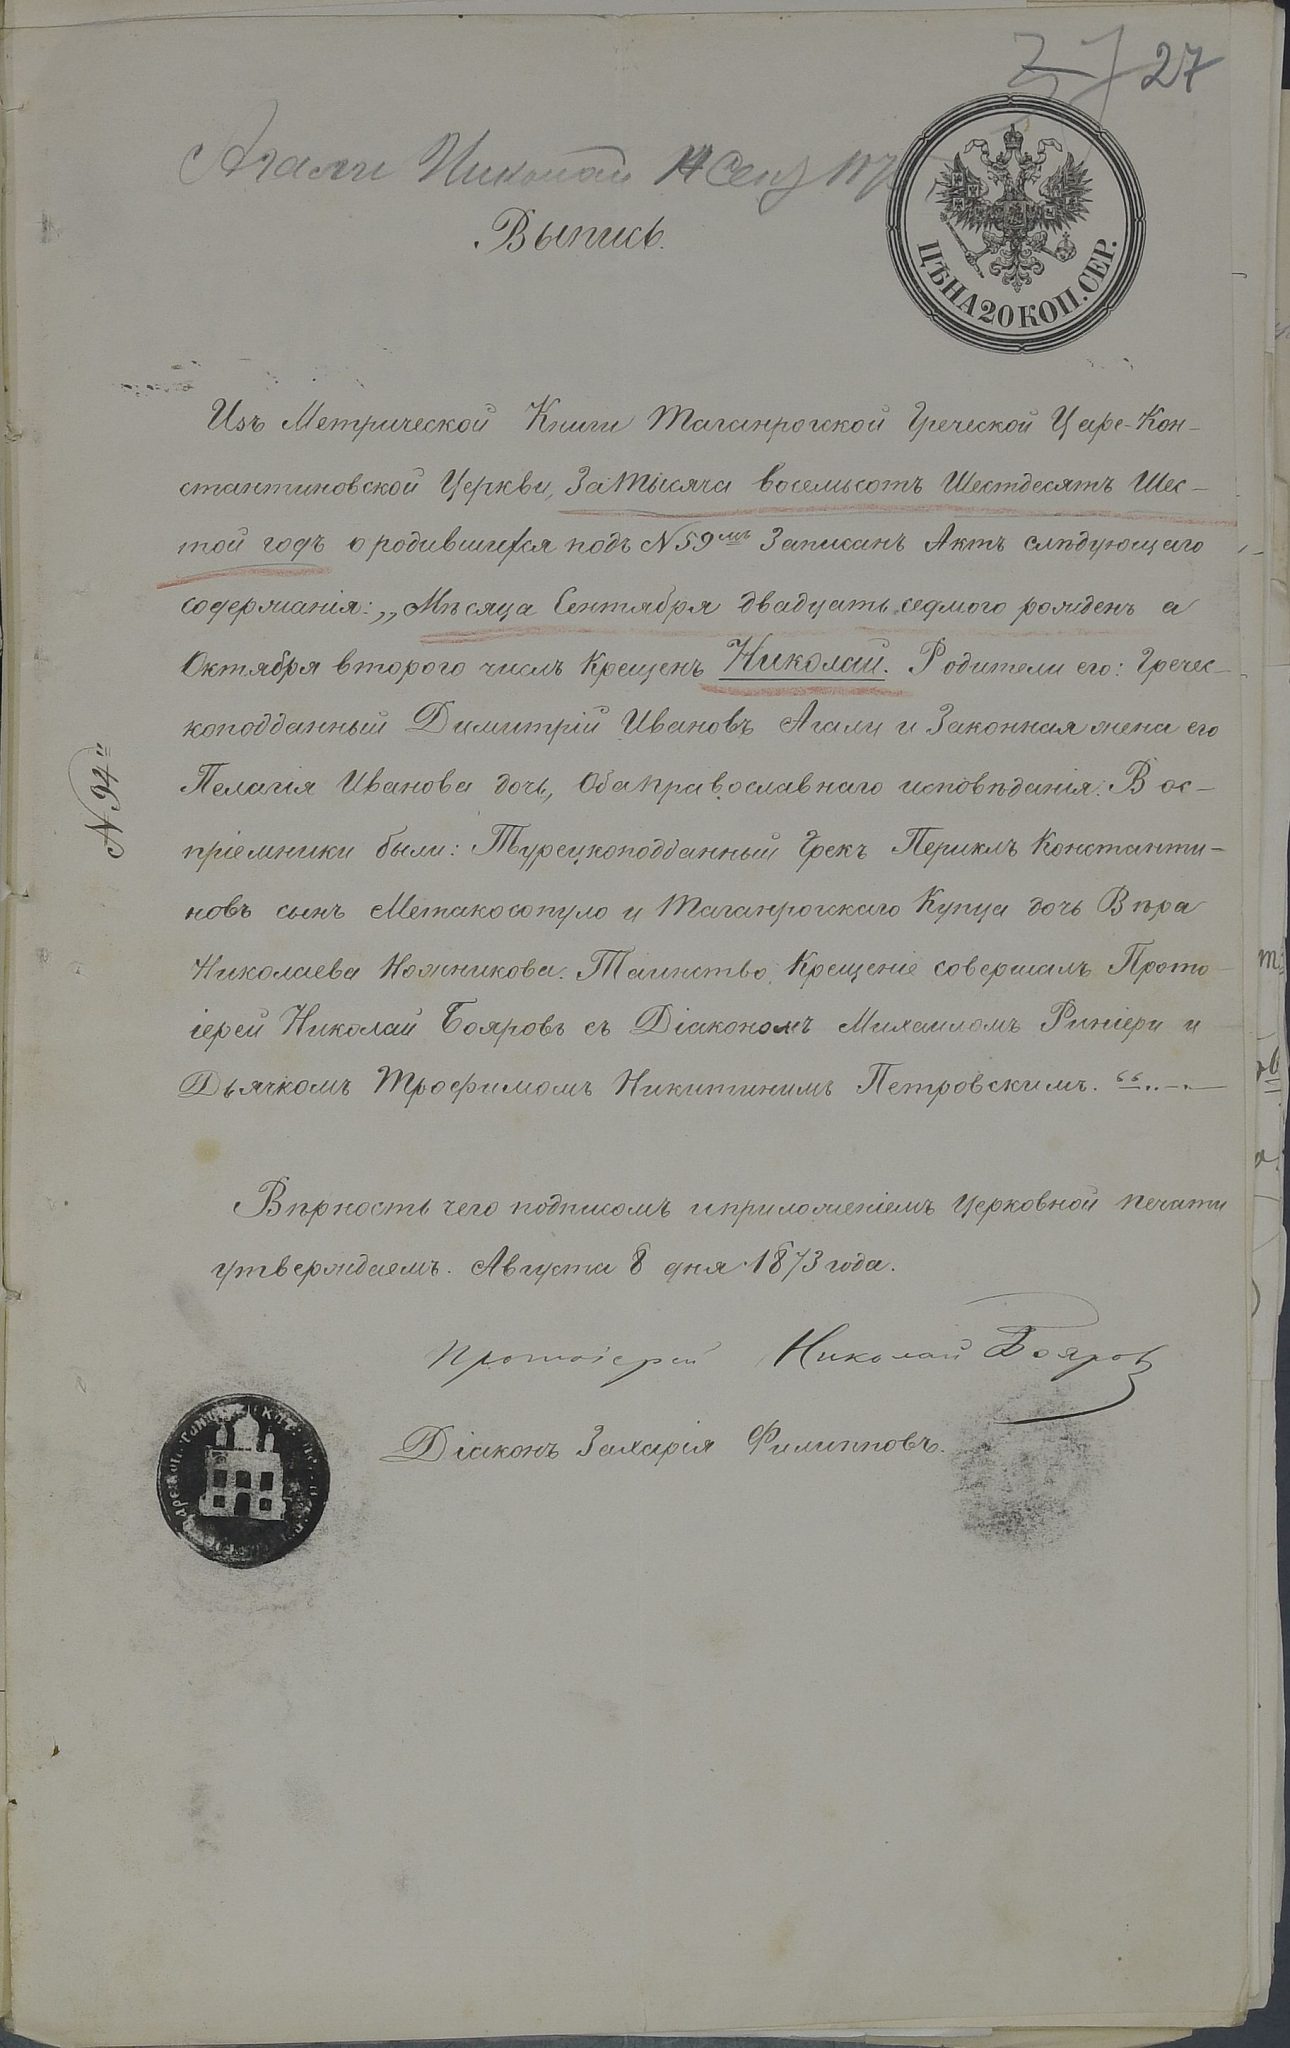 27
Агали Николай 14 Сент
Выпись.
ЦѢНА 20 КОП. СЕР.
Изъ Метрической Книги Таганрогской Греческой Царе-Кон-
стантиновской Церкви, За тысяча восемьсотъ Шестдесятъ Шес-
той годъ о родившихся подъ N 59мъ Записанъ Актъ слѣдующаго
содержанія: „Мѣсяца Сентября двадцать седмого рожденъ а
Октября второго числъ Крещенъ Николай. Родители его: Гречес-
коподданный Димитрій Ивановъ Агали и Законная жена его
Пелагія Иванова дочь, Оба православнаго исповѣданія. Вос-
пріемники были: Турецкоподданный Грекъ Периклъ Константи-
новъ сынъ Метакосопуло и Таганрогскаго Купца дочь Вѣра
Николаева Ножникова. Таинство Крещеніе совершалъ Прото-
іерей Николай Бояровъ съ Діакономъ Михаиломъ Риніери и
Дьячкомъ Трофимомъ Никитинимъ Петровскимъ.“
N 94й
Вѣрность чего подписомъ и приложеніемъ Церковной печати
утверждаемъ. Августа 8 дня 1873 года.
Протоіерей Николай Бояровъ
Діаконъ Захарія Филипповъ.